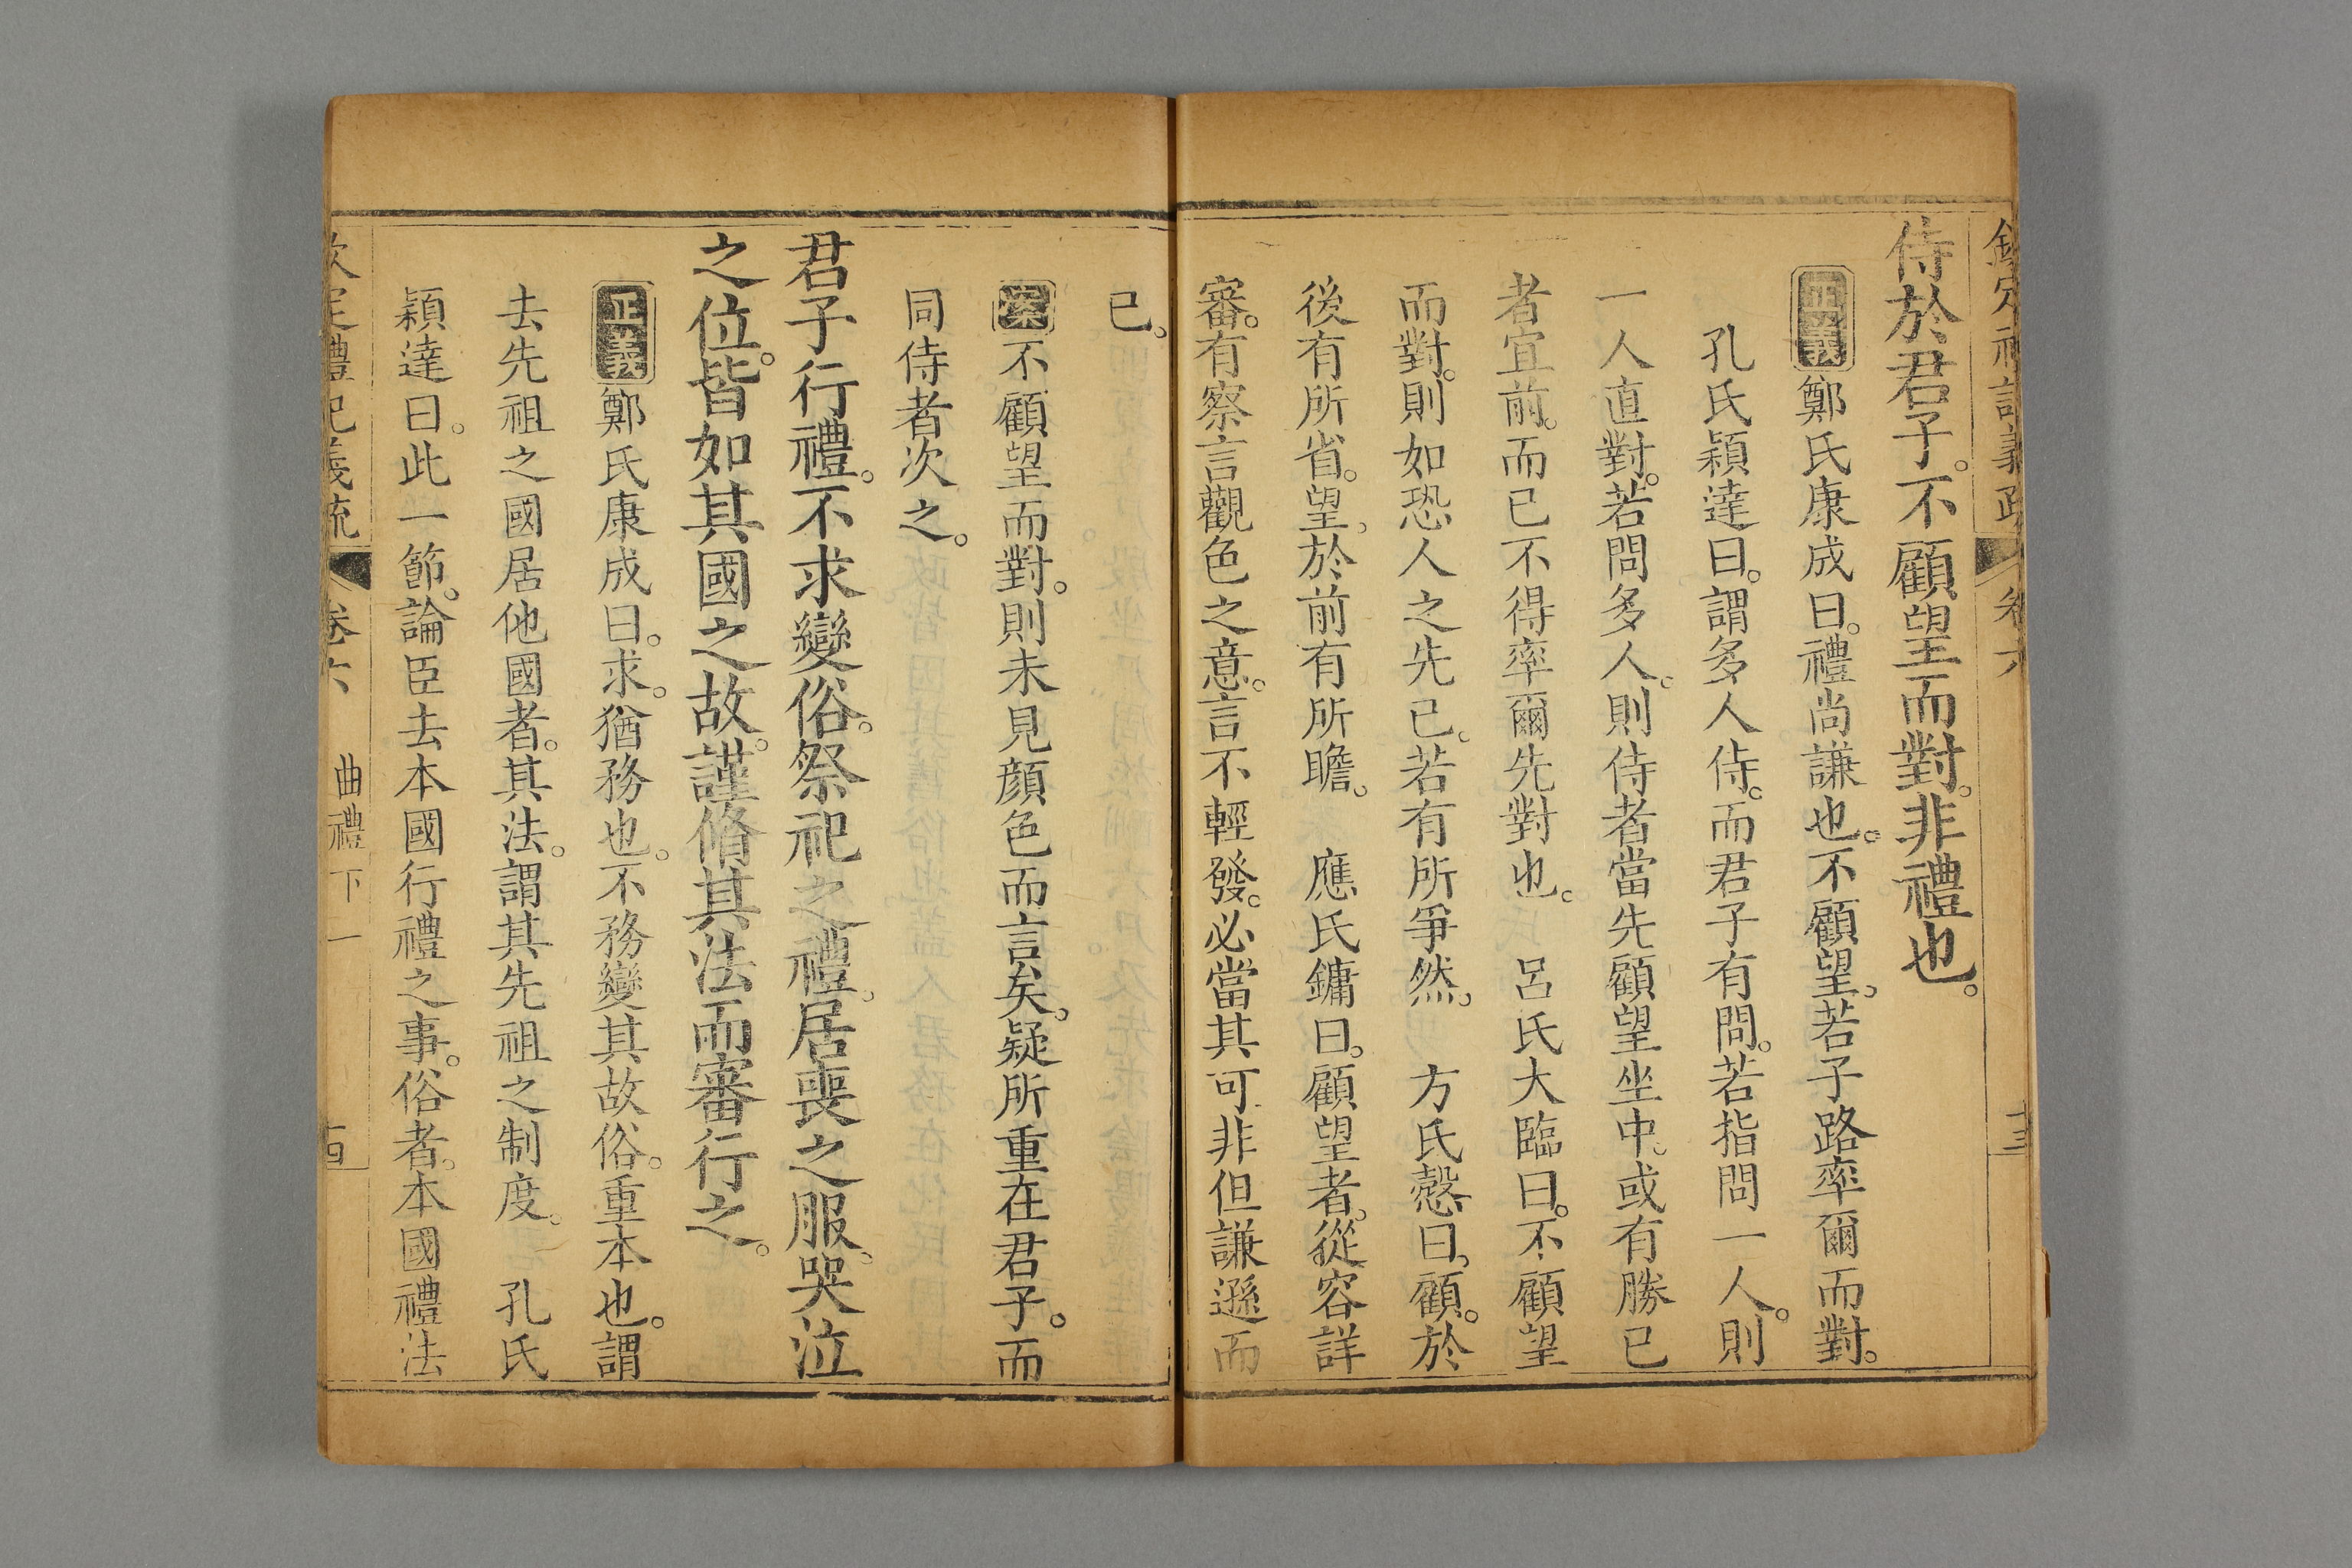 侍於君子。不顧望而對。非禮也。
正義鄭氏康成曰。禮尚謙也。不顧望。若子路率爾而對。
孔氏穎達曰。謂多人侍。而君子有問。若指問一人。則
一人直對。若問多人。則侍者當先顧望坐中。或有勝已
者宜前。而已不得率爾先對也。 呂氏大臨曰。不顧望
而對。則如恐人之先已。若有所爭然。 方氏慤曰。顧。於
後有所省。望。於前有所瞻。 應氏鏞曰。顧望者。從容詳
審。有察言觀色之意。言不輕發。必當其可。非但謙遜而
已。
案不顧望而對。則未見顔色而言矣。疑所重在君子。而
同侍者次之。
君子行禮。不求變俗。祭祀之禮。居喪之服。哭泣
之位。皆如其國之故。謹脩其法而審行之。
正義鄭氏康成曰。求。猶務也。不務變其故俗。重本也。謂
去先祖之國居他國者。其法。謂其先祖之制度。 孔氏
穎達曰。此一節。論臣去本國行禮之事。俗者。本國禮法
欽定禮記義疏 卷六 曲禮下一